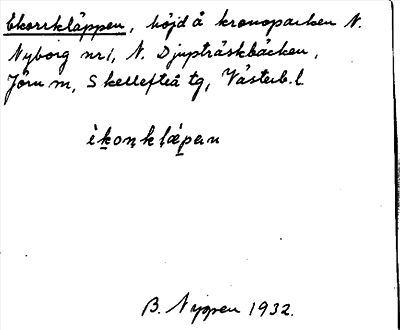 Ekorrkläppen, höjd å kronoparken N.
Nyborg nr 1, N. Djupträskbäcken,
Jörn sn, Skellefteå tg, Västerb. l.
èkoṇklǽpen
B. Nyppen 1932.